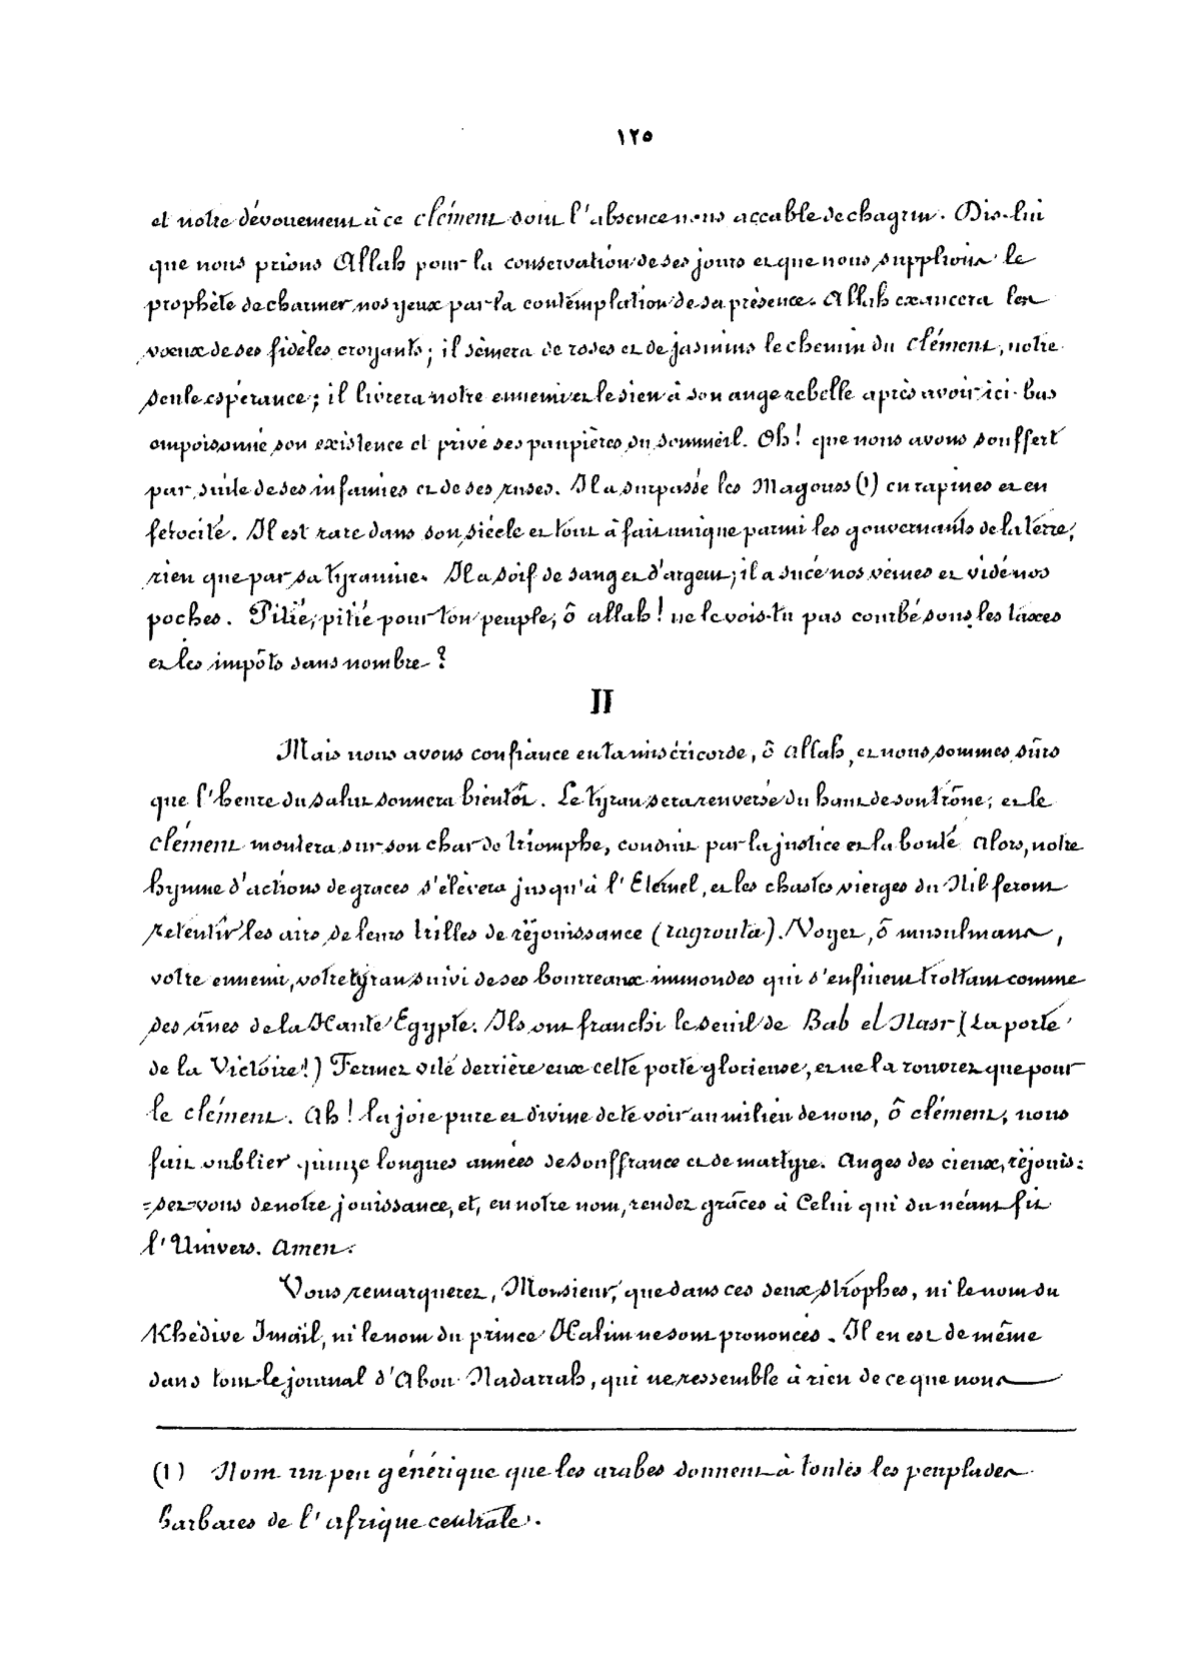 ١٢٥
et notre dévouement à ce clément dont l'absence nous accable de chagrin. Dis-lui
que nous prions Allah pour la conservation de ses jours et que nous supplions le
prophète de charmer nos yeux par la contemplation de sa présence. Allah exaucera les
vœux de ses fidèles croyants; il sèmera de roses et de jasmins le chemin du clément, notre
seule espérance; il livrera notre ennemi et le sien à son ange rebelle après avoir ici-bas
empoisonné son existence et privé ses paupières du sommeil. Oh! que nous avons souffert
par suite de ses infamies et de ses ruses. Il a surpassé les Magouss (1) en rapines et en
férocité. Il est rare dans son siécle et tout à fait unique parmi les gouvernants de la terre;
rien que par sa tyrannie. Il a soif de sang et d'argent; il a sucé nos veines et vidé nos
poches. Pitié, pitié pour ton peuple, ô allah! ne le vois-tu pas courbé sous les taxes
et les impôts sans nombre?
II
Mais nous avons confiance en ta miséricorde, ô Allah, et nous sommes sûrs
que l'heure du salut sonnera bientôt. Le tyran sera renversé du haut de son trône; et le
clément montera sur son char de triomphe, conduit par la justice et la bonté. Alors, notre
hymne d'actions de graces s'élèvera jusqu'à l'Eternel, et les chastes vierges du Nil feront
retentir les airs de leurs trilles de réjouissance (ragrouta). Voyez, ô musulmans,
votre ennemi, votre tyran suivi de ses bourreaux immondes qui s'enfuient trottant comme
des ânes de la Haute Egypte. Ils ont franchi le seuil de Bab el Nasr (La porte
de la Victoire!) Fermez vite derrière eux cette porte glorieuse, et ne la rouvrez que pour
le clément. Ah! la joie pure et divine de te voir au milieu de nous, ô clément, nous
fait oublier quinze longues années de souffrance et de martyre. Anges des cieux, réjouis=
=sez-vous de notre jouissance, et, en notre nom, rendez grâces à Celui qui du néant fit
l'Univers. Amen.
Vous remarquerez, Monsieur, que dans ces deux strophes, ni le nom du
Khédive Ismaïl, ni le nom du prince Halim ne sont prononcés. Il en est de même
dans tout le journal d'Abou Naddarah, qui ne ressemble à rien de ce que nous
(1) Nom un peu générique que les arabes donnent à toutes les peuplades
barbares de l'afrique centrale.